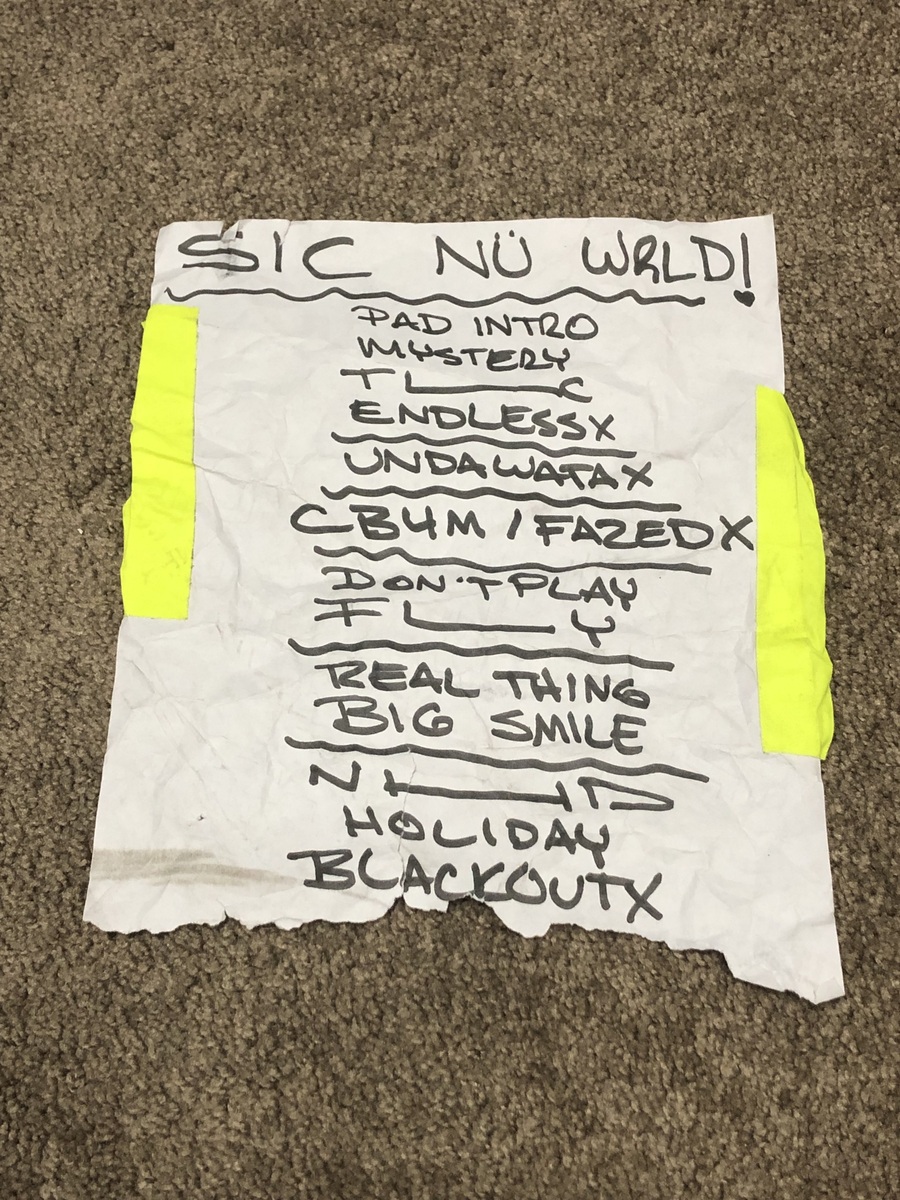 SIC NÜ WRLD!
PAD INTRO
MYSTERY
TL____C
ENDLESSX
UNDAWATAX
CB4M / FAZEDX
DON'T PLAY
FL____Y
REAL THING
BIG SMILE
HOLIDAY
BLACKOUTX